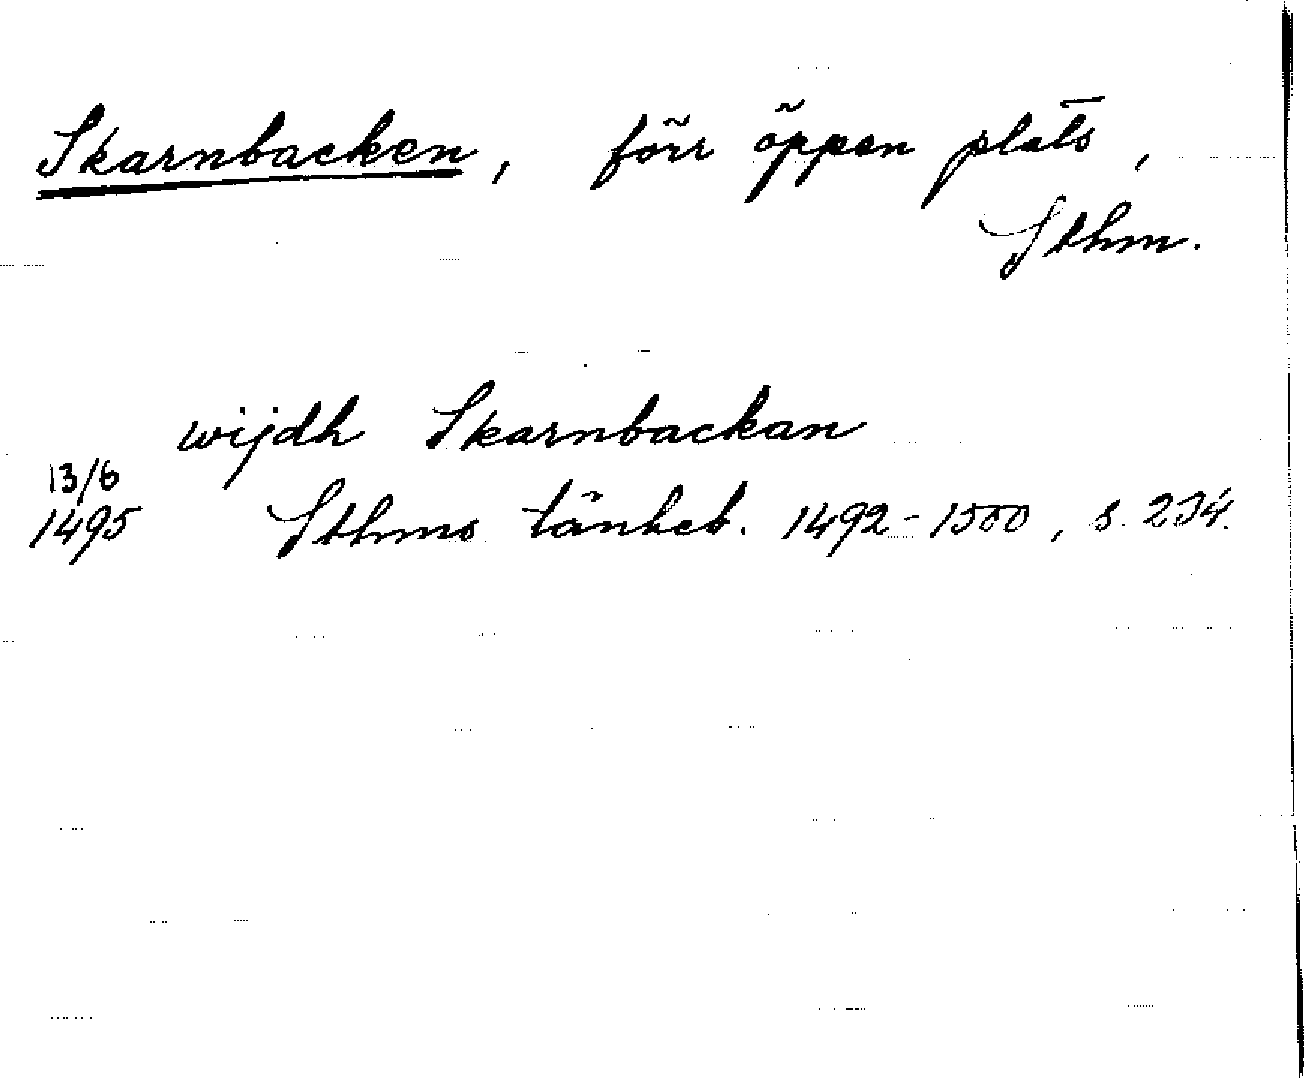 Skarnbacken, förr öppen plats,
Sthm.
wijdh Skarnbackan
13/6
1495 Sthms tänkeb. 1492-1500, s. 234.